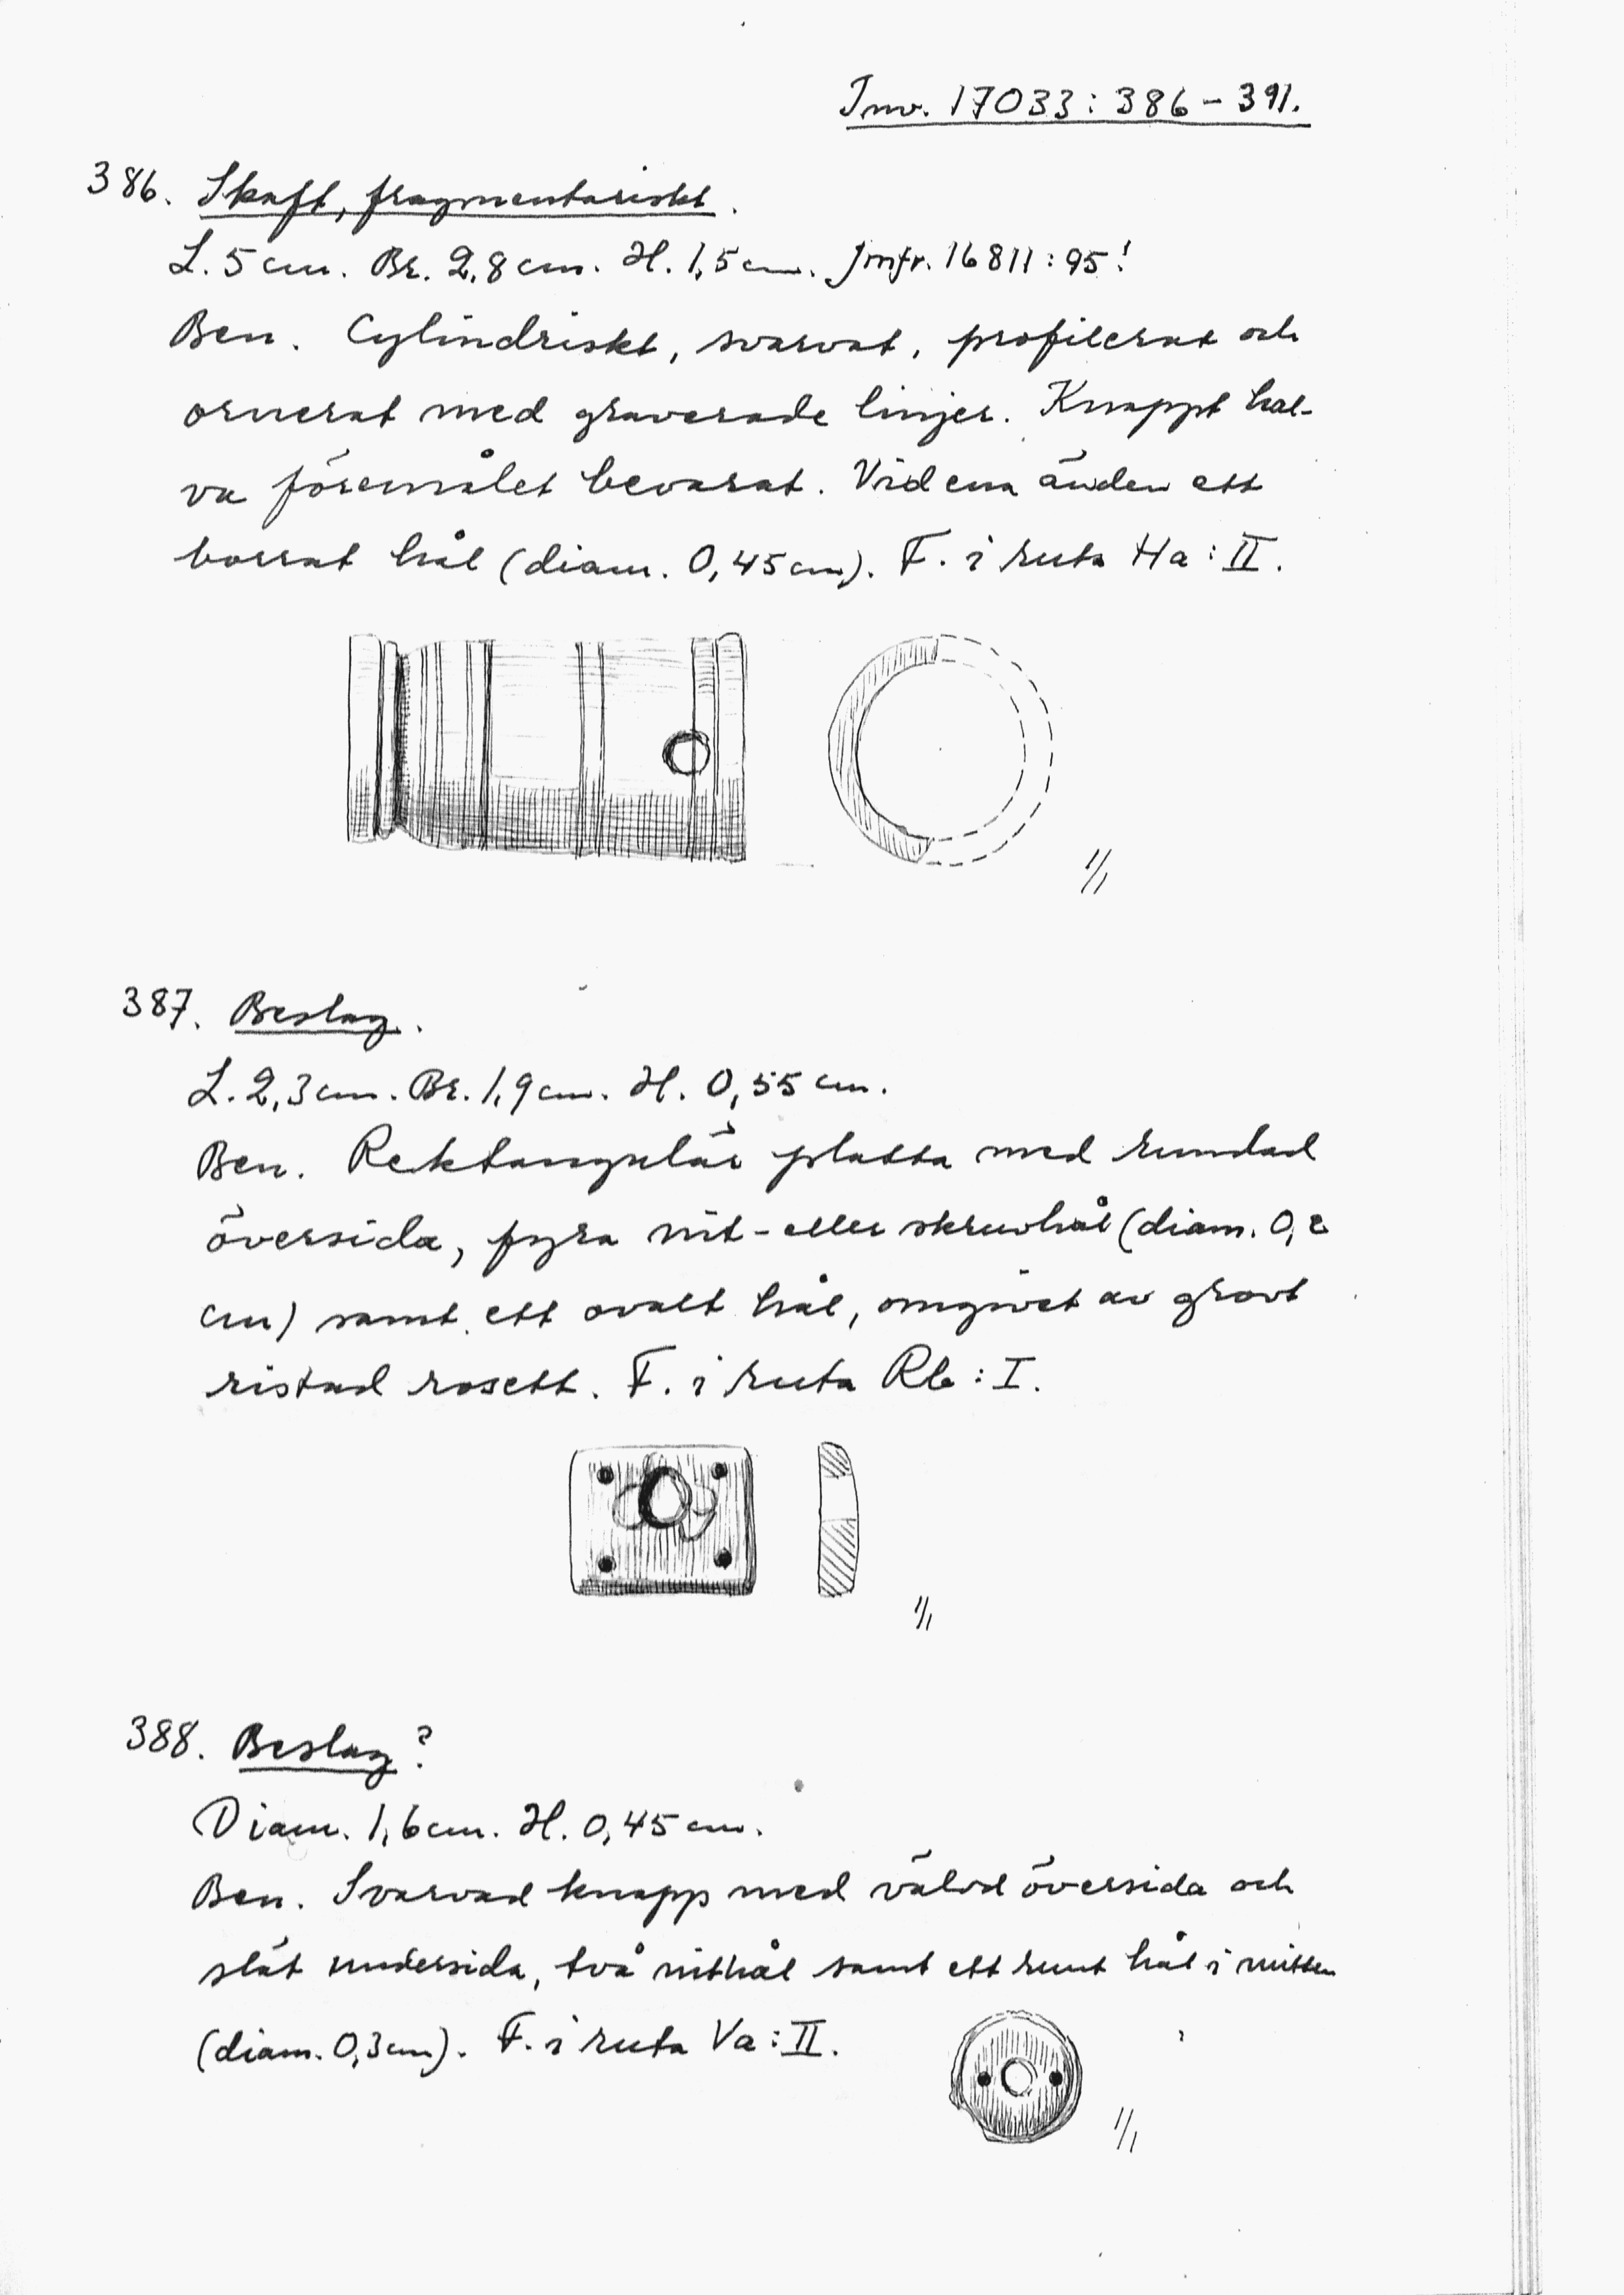 Inv. 17033:386-391.
386. Skaft, fragmentariskt.
L. 5 cm. Br. 2,8 cm. H. 1,5 cm. Jmfr. 16811:95!
Ben. Cylindriskt, svarvat, profilerat och
ornerat med graverade linjer. Knappt hal-
va föremålet bevarat. Vid ena änden ett
borrat hål (diam. 0,45 cm). F. i ruta Ha:II.
1/1
387. Beslag.
L. 2,3 cm. Br. 1,9 cm. H. 0,55 cm.
Ben. Rektangulär platta med rundad
översida, fyra nit- eller skruvhål (diam. 0,2
cm) samt ett ovalt hål, omgivet av grovt
ristad rosett. F. i ruta Rb:I.
1/1
388. Beslag?
Diam. 1,6 cm. H. 0,45 cm.
Ben. Svarvad knapp med välvd översida och
slät undersida, två nithål samt ett runt hål i mitten
(diam. 0,3 cm). F. i ruta Va:II.
1/1